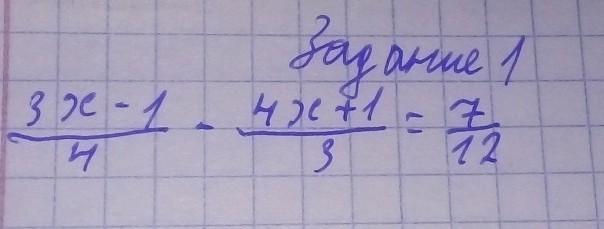 Задание 1
(3x - 1)/4 - (4x + 1)/3 = 7/12